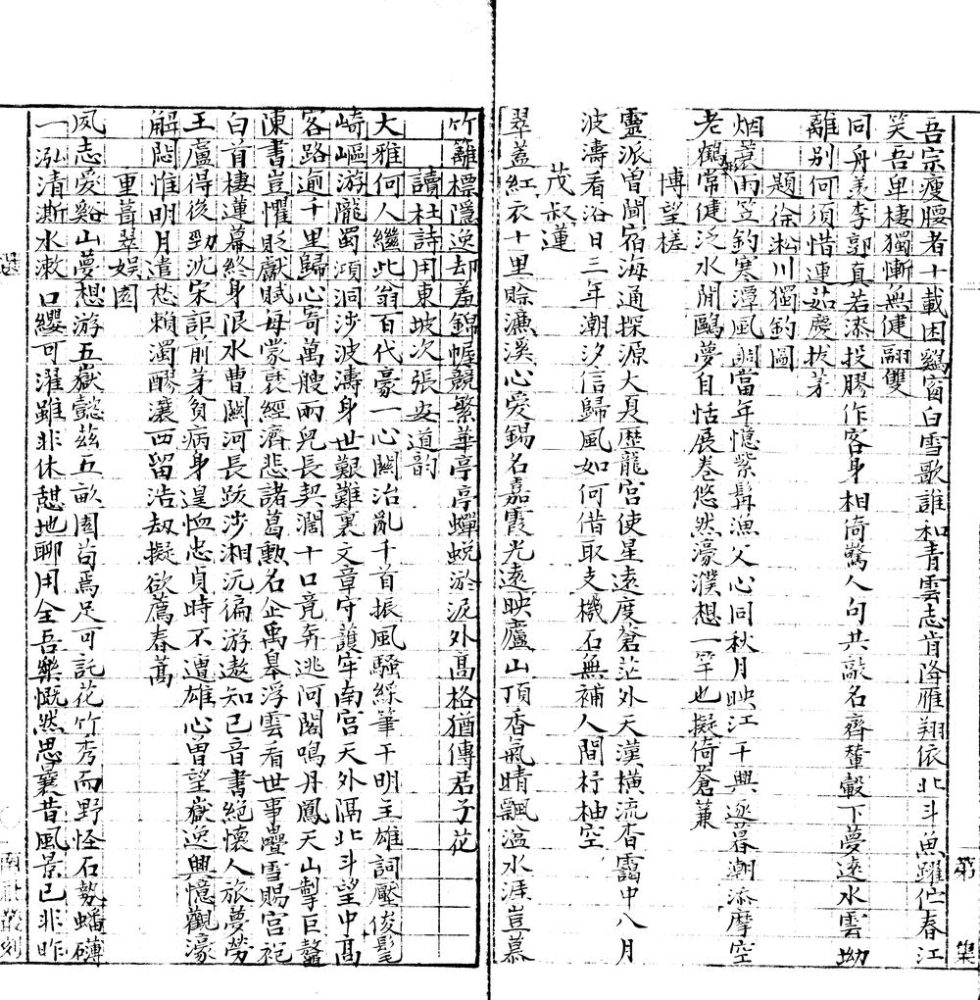 吾宗瘦腰者十載困鷄窗白雪歌誰和青雲志肯降雁翔依北斗魚躍伫春江
笑吾单棲獨慚無健翮雙
同舟羡李郭真若漆投膠作客身相倚驚人句共敲名齊輦轂下夢遶水雲坳
離别何須惜連茹慶拔茅
題徐松川獨釣圖
烟蓑雨笠釣寒潭風調當年憶紫髯漁父心同秋月映江干興逐暮潮添摩空
老鶴常健泛水閒鷗夢自恬展巻悠然濠濮想一竿也擬倚蒼蒹
博望槎
靈派曽聞宿海通探源大夏歷龍宫使星遠度蒼茫外天漢横流杳靄中八月
波濤看浴日三年潮汐信歸風如何借取支機石無補人間杼柚空
茂叔蓮
翠蓋紅衣十里賒濂溪心愛錫名嘉霞光遠映廬山頂香氣晴飄湓水涯豈慕
竹籬標隱逸却羞錦幄競繁華亭亭蟬蜕淤泥外高格猶傳君子花
讀杜詩用東坡次張安道韵
大雅何人繼此翁百代豪一心關治亂千首振風騷綵筆干明主雄詞壓俊髦
崎嶇游隴蜀澒洞涉波濤身世艱難裏文章守護牢南宫天外隔北斗望中高
客路逾千里歸心寄萬艘兩兒長契濶十口竟奔逃阿閣鳴丹鳳天山掣巨鼇
陳書豈懼貶獻賦每蒙襃經濟悲諸葛勲名企禹皋浮雲看世事疊雪賜宫袍
白首棲蓮幕終身限水曹關河長跋涉湘沅偏游遨知已音書絶懷人旅夢勞
王盧得後勁沈宋詎前茅貧病身遑恤忠貞時不遭雄心曽望嶽逸興憶觀濠
解悶惟明月遣愁賴濁醪瀼西留浩刼擬欲薦春蒿
重葺翠娱園
夙志愛谿山夢想游五嶽懿兹五畝園苟焉足可託花竹秀而野怪石勢蟠礴
一泓清斯水漱口纓可濯雖非休憩地聊用全吾樂慨然思襄昔風景已非昨
第 集
選
叢刻